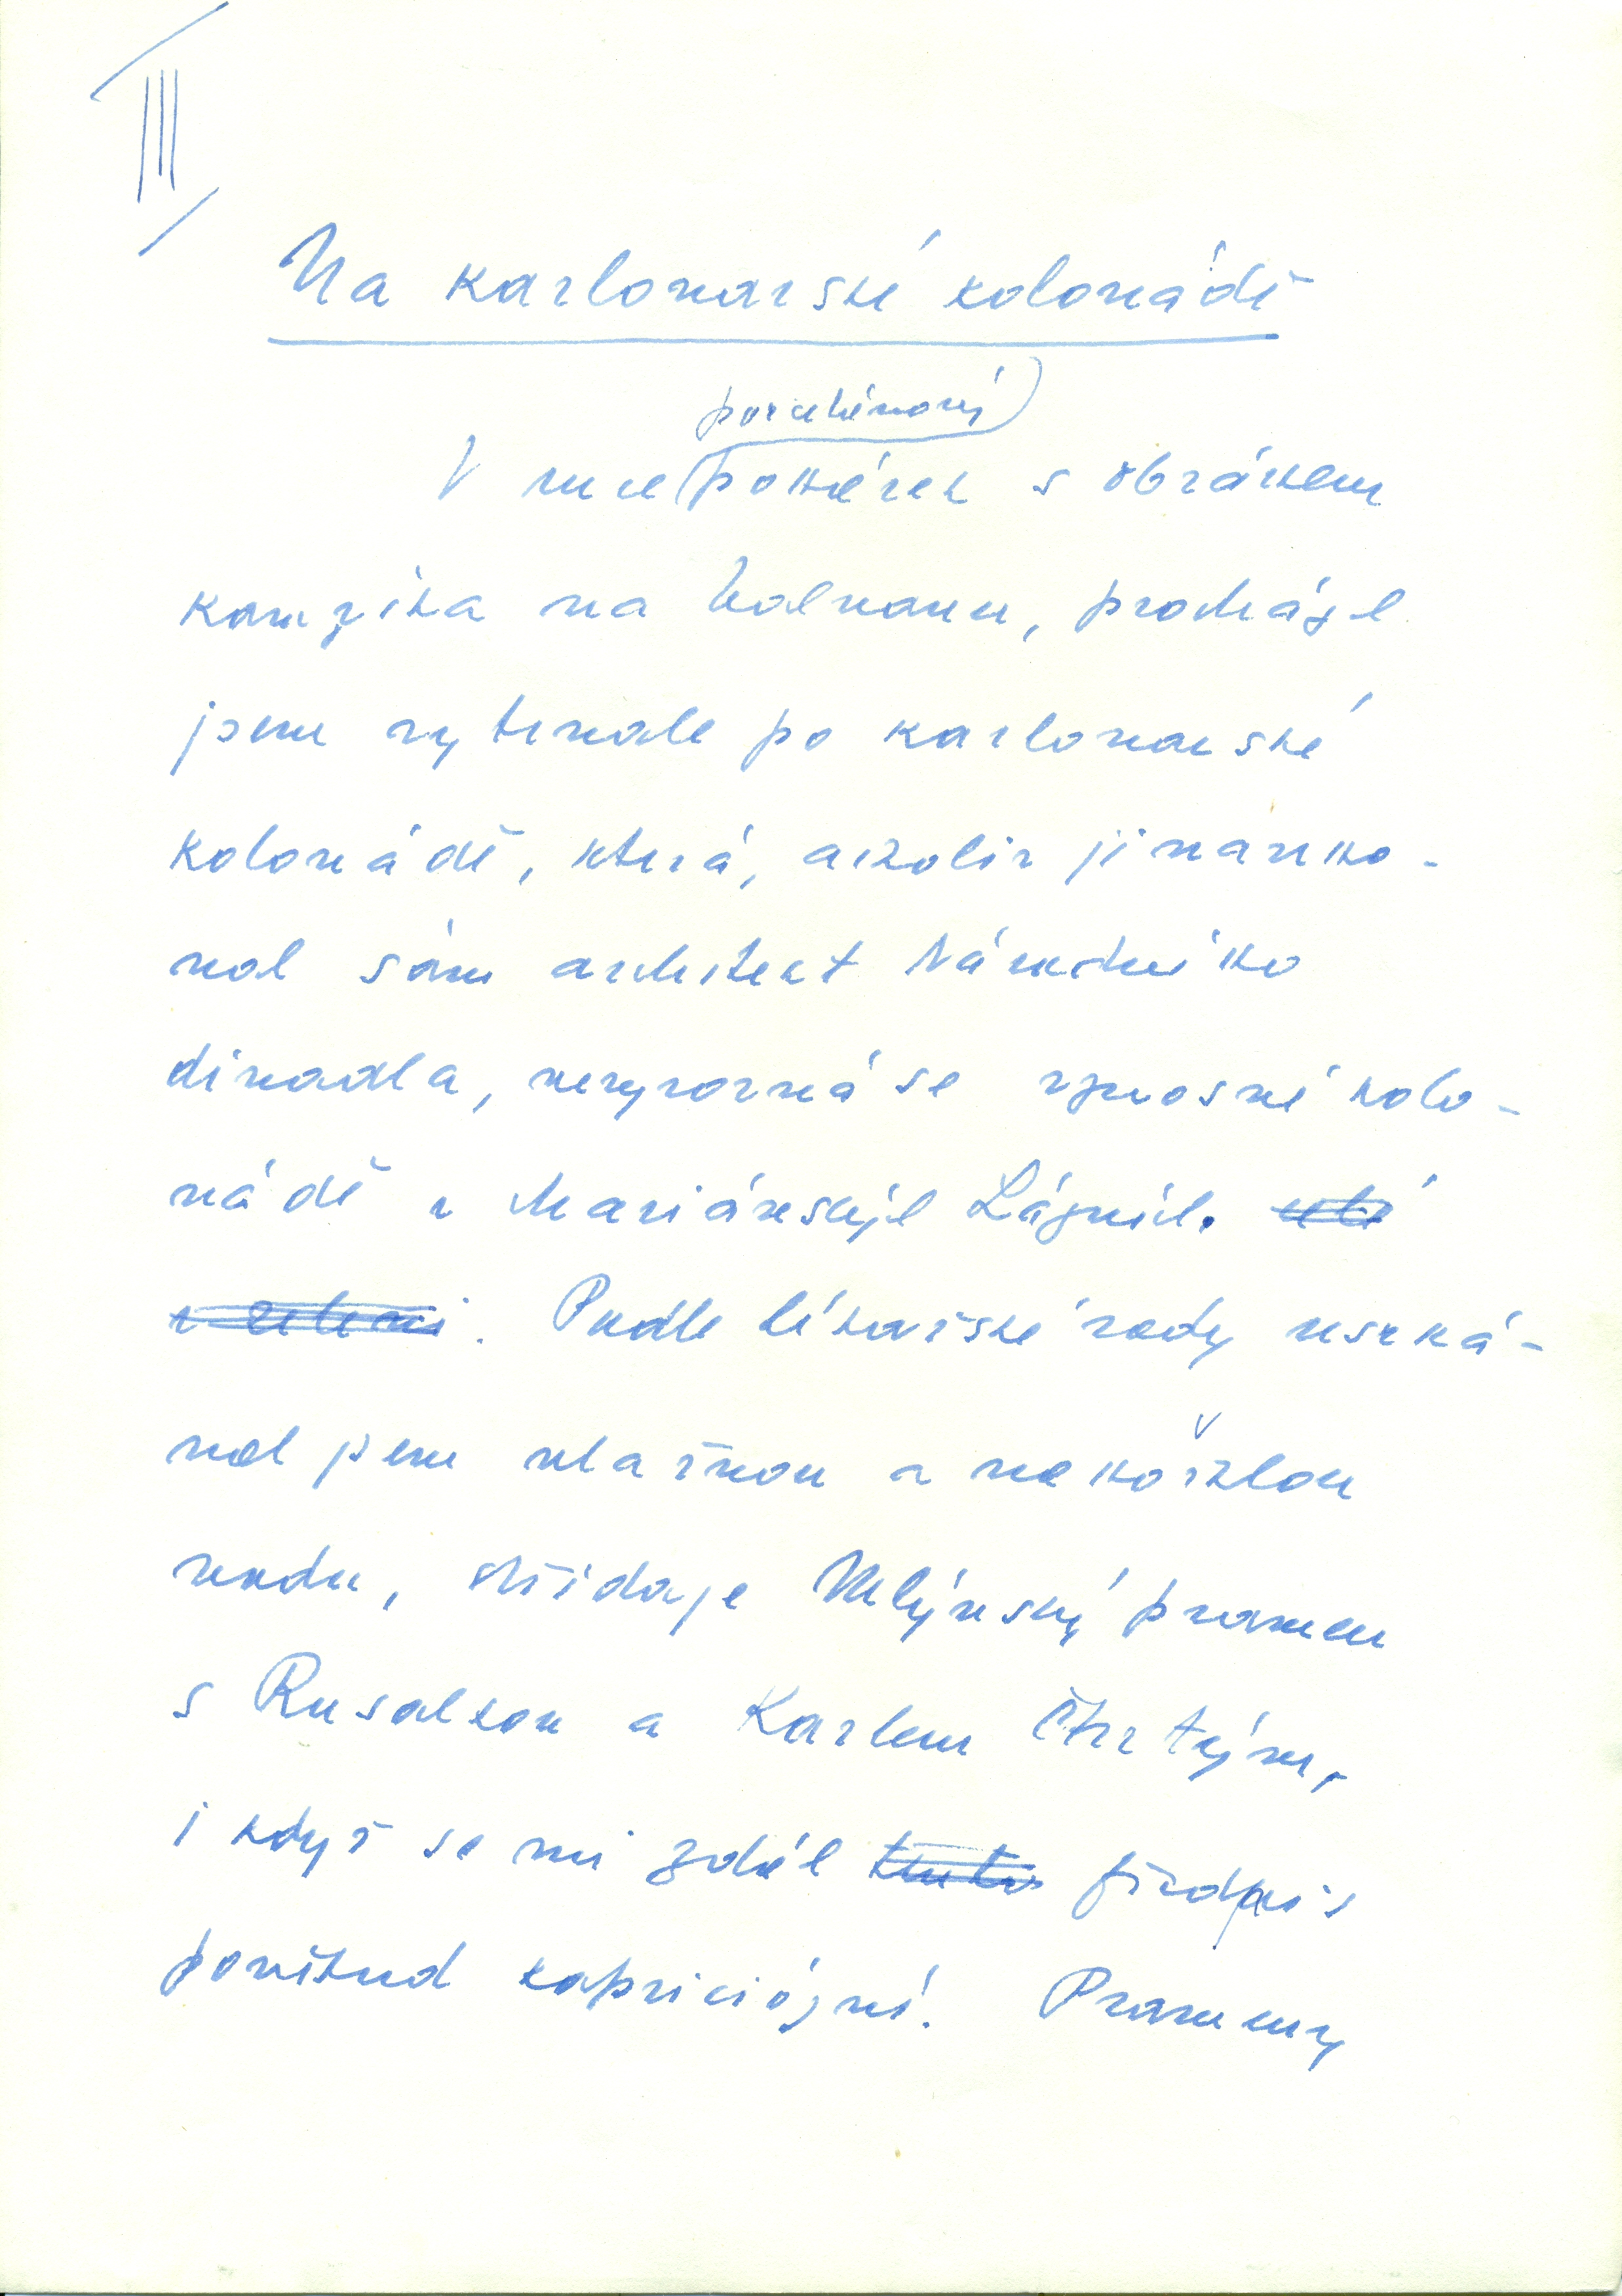 III
Na karlovarské kolonádě
porcelánový
V ruce pohárek s obrázkem
kamzíka na balvanu, procházel
jsem vytrvale po karlovarské
kolonádě, která, ačkoliv ji navrho-
val sám architekt Národního
divadla, nevyrovná se vznosné kolo-
nádě v Mariánských Lázních.
v zeleni. Podle lékařské rady usrká-
val jsem vlažnou a nakyslou
vodu, střídaje Mlýnský pramen
s Rusalkou a Karlem Čtvrtým,
i když se mi zdál tento předpis
poněkud kapriciózní. Prameny